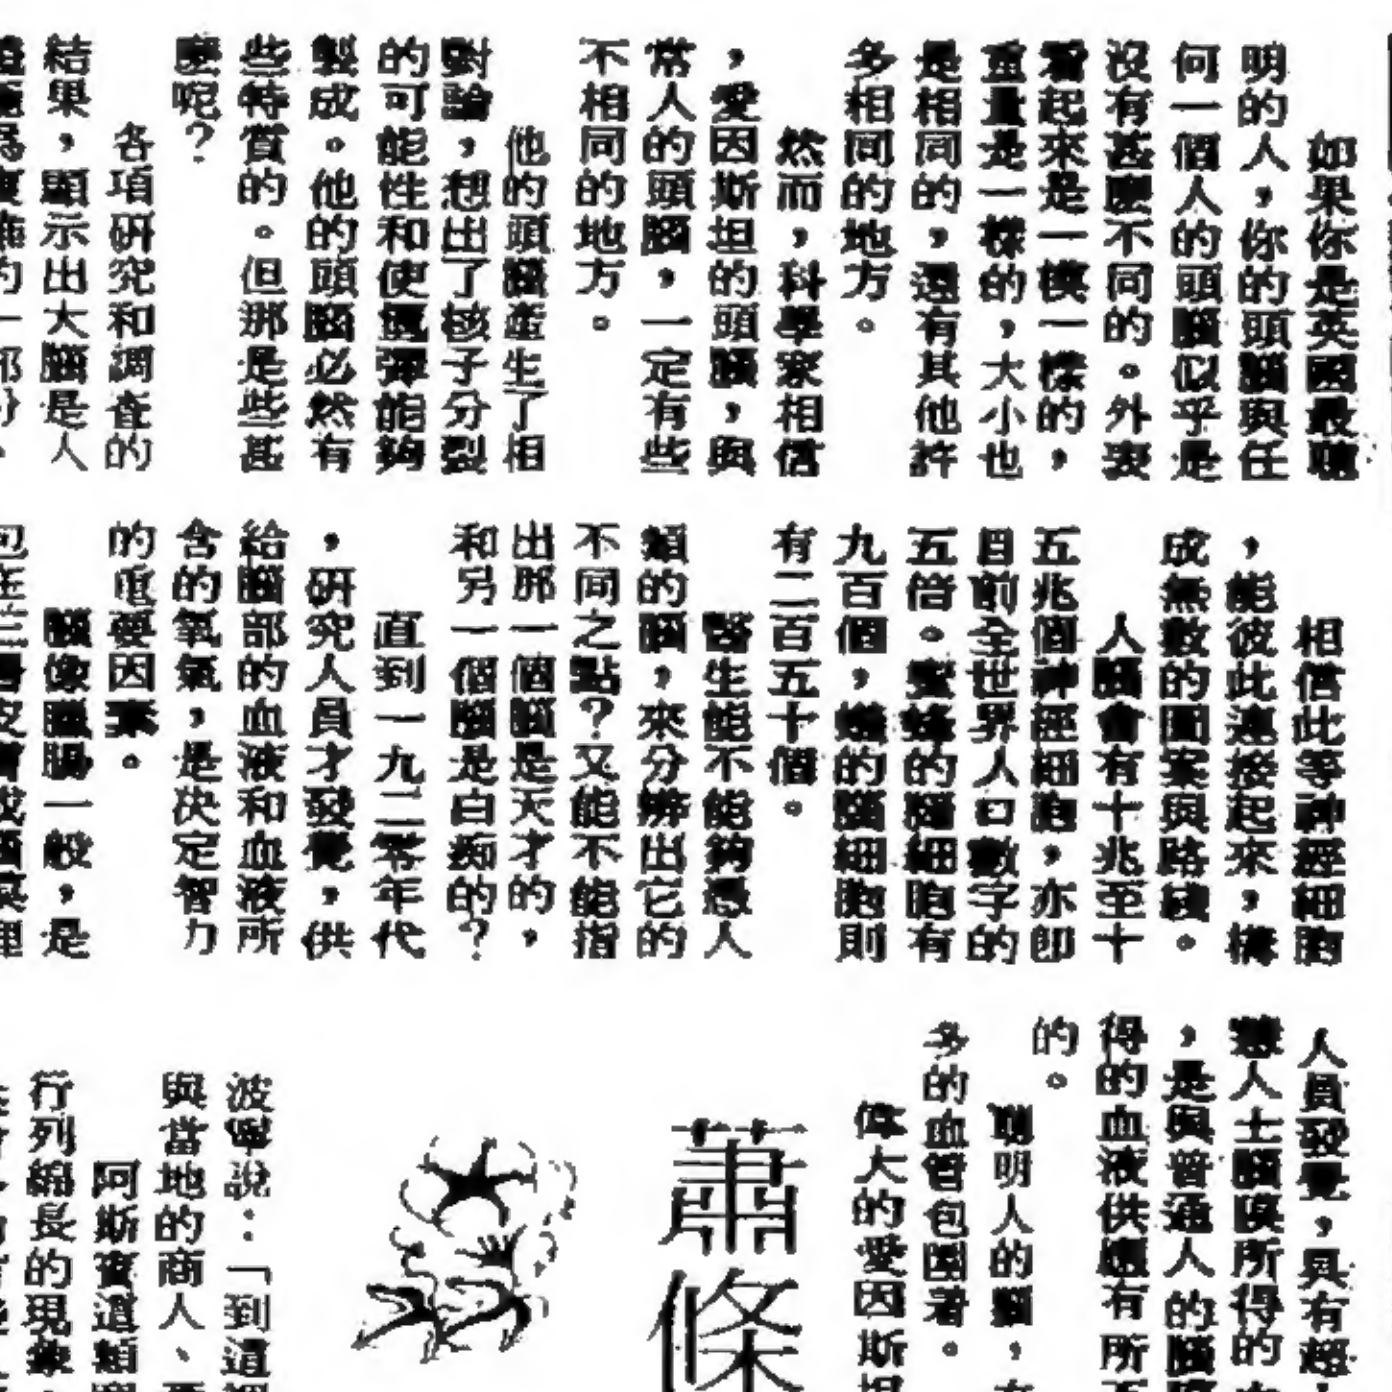 如果你是英國最聰
明的人，你的頭腦與任
何一個人的頭腦似乎是
沒有甚麼不同的。外表
看起來是一模一樣的，
重量是一樣的，大小也
是相同的，還有其他許
多相同的地方。
然而，科學家相信
，愛因斯坦的頭腦，與
常人的頭腦，一定有些
不相同的地方。
他的頭腦產生了相
對論，想出了核子分裂
的可能性和使氫彈能夠
製成。他的頭腦必然有
些特質的。但那是些甚
麼呢？
各項研究和調查的
結果，顯示出大腦是人
相信此等神經細胞
，能彼此連接起來，構
成無數的圖案與路綫。
人腦會有十兆至十
五兆個神經細胞，亦即
目前全世界人口數字的
五倍。蜜蜂的腦細胞有
九百個，蟻的腦細胞則
有二百五十個。
醫生能不能夠憑人
類的腦，來分辨出它的
不同之點？又能不能指
出那一個腦是天才的，
和另一個腦是白痴的？
直到一九二零年代
，研究人員才發覺，供
給腦部的血液和血液所
含的氧氣，是決定智力
的重要因素。
腦像臘腸一般，是
人員發覺，具有超
人士腦膜所得的
，是與普通人的腦
得的血液供應有所
的。
聰明人的腦，
多的血管包圍着。
偉大的愛因斯
蕭條
波寧說：「到這
與當地的商人、
阿斯賓這類
行列綿長的現象